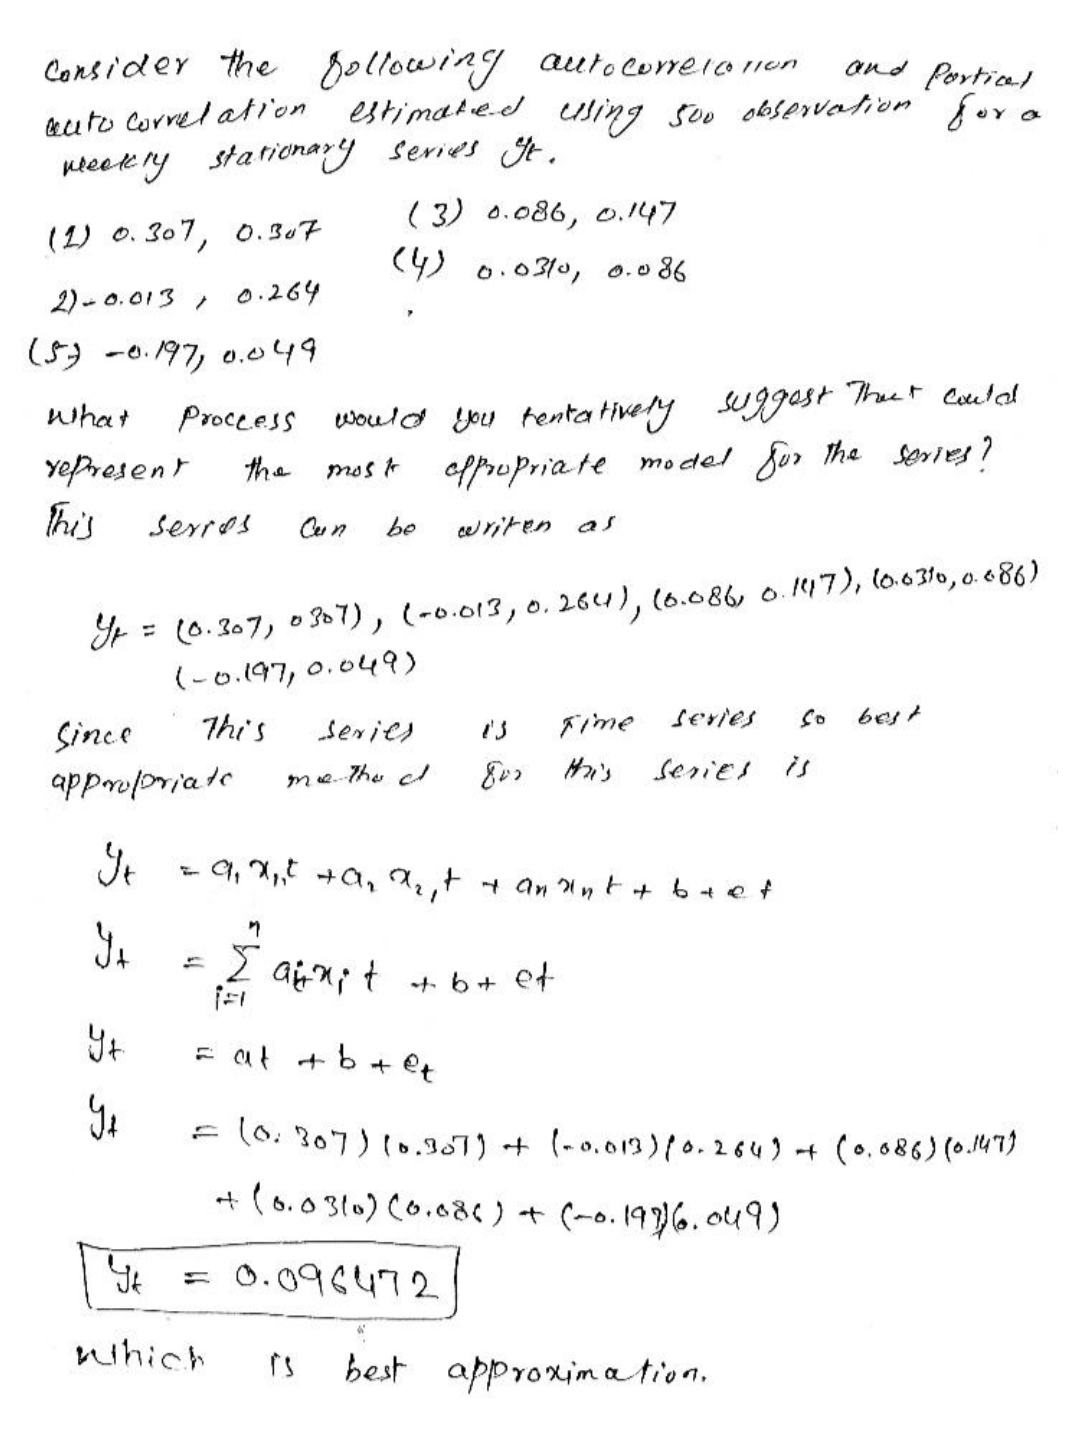 Consider the following autocorrelation and Partial
auto correlation estimated using 500 observation for a
weekly stationary series yt.
(1) 0.307, 0.307 (3) 0.086, 0.147
2) -0.013, 0.264 (4) 0.0310, 0.086
(5) -0.197, 0.049
What Process would you tentatively suggest That could
represent the most appropriate model for the series?
This series can be writen as
yt = (0.307, 0307), (-0.013, 0.264), (0.086, 0.147), (0.0310, 0.086)
(-0.197, 0.049)
Since This series is Time series so best
appropriate method for this series is
yt = a1 x1,t + a2 x2,t + an xn t + b + et
yt = Σ i=1 n ai xi t + b + et
yt = at + b + et
yt = (0.307)(0.307) + (-0.013)(0.264) + (0.086)(0.147)
+ (0.0310)(0.086) + (-0.197)(0.049)
yt = 0.096472
which is best approximation.